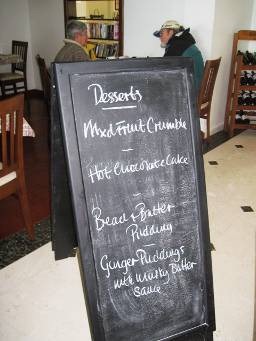 Desserts
Mixd Fruit Crumble
Hot Chocolate Cake
Bread & Butter
Pudding
Ginger Puddings
with Butter
Sauce